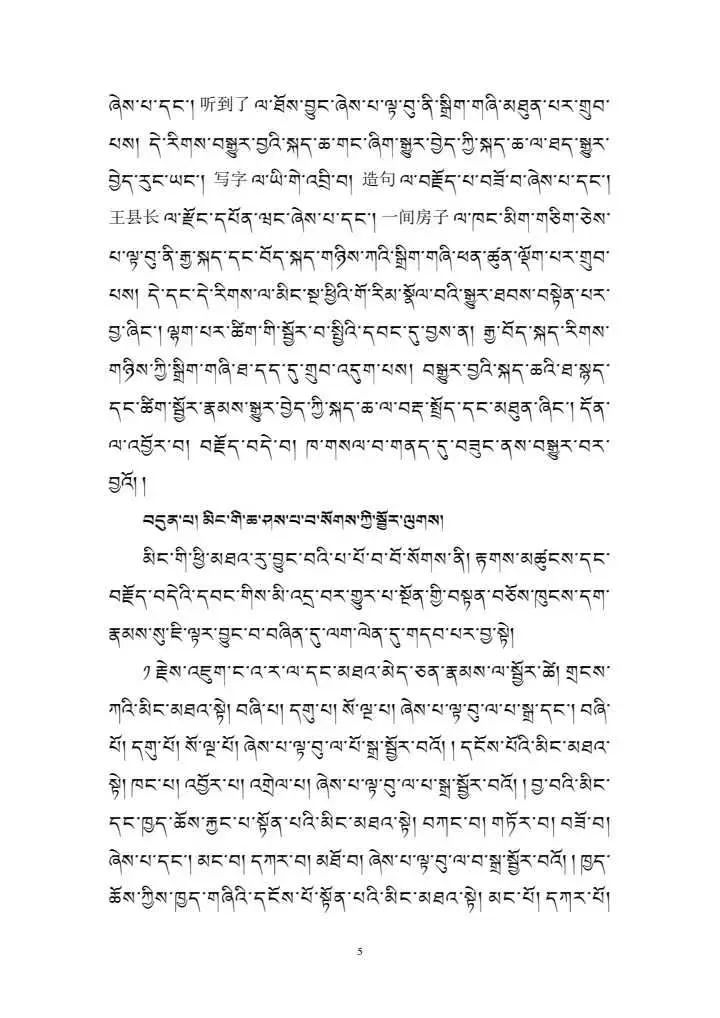 ཞེས་པ་དང་། 听到了 ལ་ཐོས་བྱུང་ཞེས་པ་ལྟ་བུ་ནི་སྒྲིག་གཞི་མཐུན་པར་གྲུབ་
པས། དེ་རིགས་བསྒྱུར་བྱའི་སྐད་ཆ་གང་ཞིག་སྒྱུར་བྱེད་ཀྱི་སྐད་ཆ་ལ་ཐད་སྒྱུར་
བྱེད་རུང་ཡང་། 写字 ལ་ཡི་གེ་འབྲི་བ། 造句 ལ་བརྗོད་པ་བཟོ་བ་ཞེས་པ་དང་།
王县长 ལ་རྫོང་དཔོན་ཝང་ཞེས་པ་དང་། 一间房子 ལ་ཁང་མིག་གཅིག་ཅེས་
པ་ལྟ་བུ་ནི་རྒྱ་སྐད་དང་བོད་སྐད་གཉིས་ཀའི་སྒྲིག་གཞི་ཕན་ཚུན་ལྡོག་པར་གྲུབ་
པས། དེ་དང་དེ་རིགས་ལ་མིང་སྔ་ཕྱིའི་གོ་རིམ་སྣོལ་བའི་སྒྱུར་ཐབས་བསྟེན་པར་
བྱ་ཞིང་། ལྷག་པར་ཚིག་གི་སྦྱོར་བ་སྤྱིའི་དབང་དུ་བྱས་ན། རྒྱ་བོད་སྐད་རིགས་
གཉིས་ཀྱི་སྒྲིག་གཞི་ཐ་དད་དུ་གྲུབ་འདུག་པས། བསྒྱུར་བྱའི་སྐད་ཆའི་ཐ་སྙད་
དང་ཚིག་སྦྱོར་རྣམས་སྒྱུར་བྱེད་ཀྱི་སྐད་ཆ་ལ་བརྡ་སྤྲོད་དང་མཐུན་ཞིང་། དོན་
ལ་འབྱོར་བ། བརྗོད་བདེ་བ། ཁ་གསལ་བ་གནད་དུ་བཟུང་ནས་བསྒྱུར་བར་
བྱའོ། །
བདུན་པ། མིང་གི་ཆ་ཤས་པ་བ་སོགས་ཀྱི་སྦྱོར་ལུགས།
མིང་གི་ཕྱི་མཐའ་རུ་བྱུང་བའི་པ་པོ་བ་བོ་སོགས་ནི། རྟགས་མཚུངས་དང་
བརྗོད་བདེའི་དབང་གིས་མི་འདྲ་བར་གྱུར་པ་སྔོན་གྱི་བསྟན་བཅོས་ཁུངས་དག་
རྣམས་སུ་ཇི་ལྟར་བྱུང་བ་བཞིན་དུ་ལག་ལེན་དུ་གདབ་པར་བྱ་སྟེ།
༡ རྗེས་འཇུག་ང་འ་ར་ལ་དང་མཐའ་མེད་ཅན་རྣམས་ལ་སྦྱོར་ཚེ། གྲངས་
ཀའི་མིང་མཐའ་སྟེ། བཞི་པ། དགུ་པ། སོ་ལྔ་པ། ཞེས་པ་ལྟ་བུ་ལ་པ་སྒྲ་དང་། བཞི་
པོ། དགུ་པོ། སོ་ལྔ་པོ། ཞེས་པ་ལྟ་བུ་ལ་པོ་སྒྲ་སྦྱོར་བའོ། །དངོས་པོའི་མིང་མཐའ་
སྟེ། ཁང་པ། འབྱོར་པ། འགྲེལ་པ། ཞེས་པ་ལྟ་བུ་ལ་པ་སྒྲ་སྦྱོར་བའོ། །བྱ་བའི་མིང་
དང་ཁྱད་ཆོས་རྐྱང་པ་སྟོན་པའི་མིང་མཐའ་སྟེ། བཀང་བ། གཏོར་བ། བཟོ་བ།
ཞེས་པ་དང་། མང་བ། དཀར་བ། མཐོ་བ། ཞེས་པ་ལྟ་བུ་ལ་བ་སྒྲ་སྦྱོར་བའོ། །ཁྱད་
ཆོས་ཀྱིས་ཁྱད་གཞིའི་དངོས་པོ་སྟོན་པའི་མིང་མཐའ་སྟེ། མང་པོ། དཀར་པོ།
5